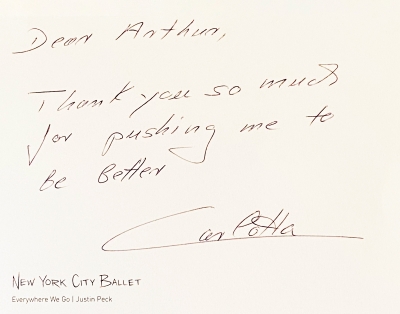 Dear Arthur,
Thank you so much
for pushing me to
be Better
Carlotta
NEW YORK CITY BALLET
Everywhere We Go | Justin Peck